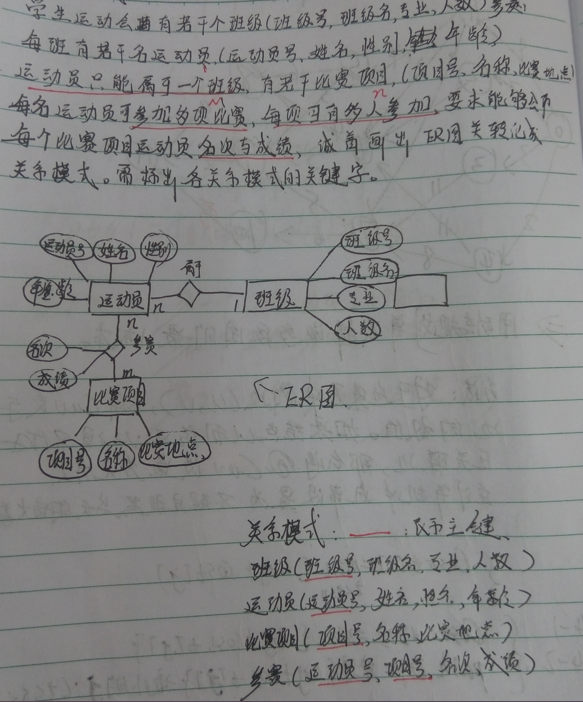 学生运动会有若干个班级(班级号,班级名,专业,人数)参赛,
每班有若干名运动员(运动员号,姓名,性别,年龄)
运动员只能属于一个班级,有若干比赛项目,(项目号,名称,比赛地点
n
每名运动员可参加多项比赛,每项可有多人参加,要求能够公布
每个比赛项目运动员名次与成绩,试着画出ER图关转化成
关系模式。需标出各关系模式的关键字。
运动员号 姓名 性别 班级号
年龄 运动员 n 有 1 班级 班级名
专业
n 人数
名次 参赛
成绩 m
比赛项目 ER图
项目号 名称 比赛地点
关系模式: 表示主键
班级(班级号,班级名,专业,人数)
运动员(运动员号,姓名,性别,年龄)
比赛项目(项目号,名称,比赛地点)
参赛(运动员号,项目号,名次,成绩)